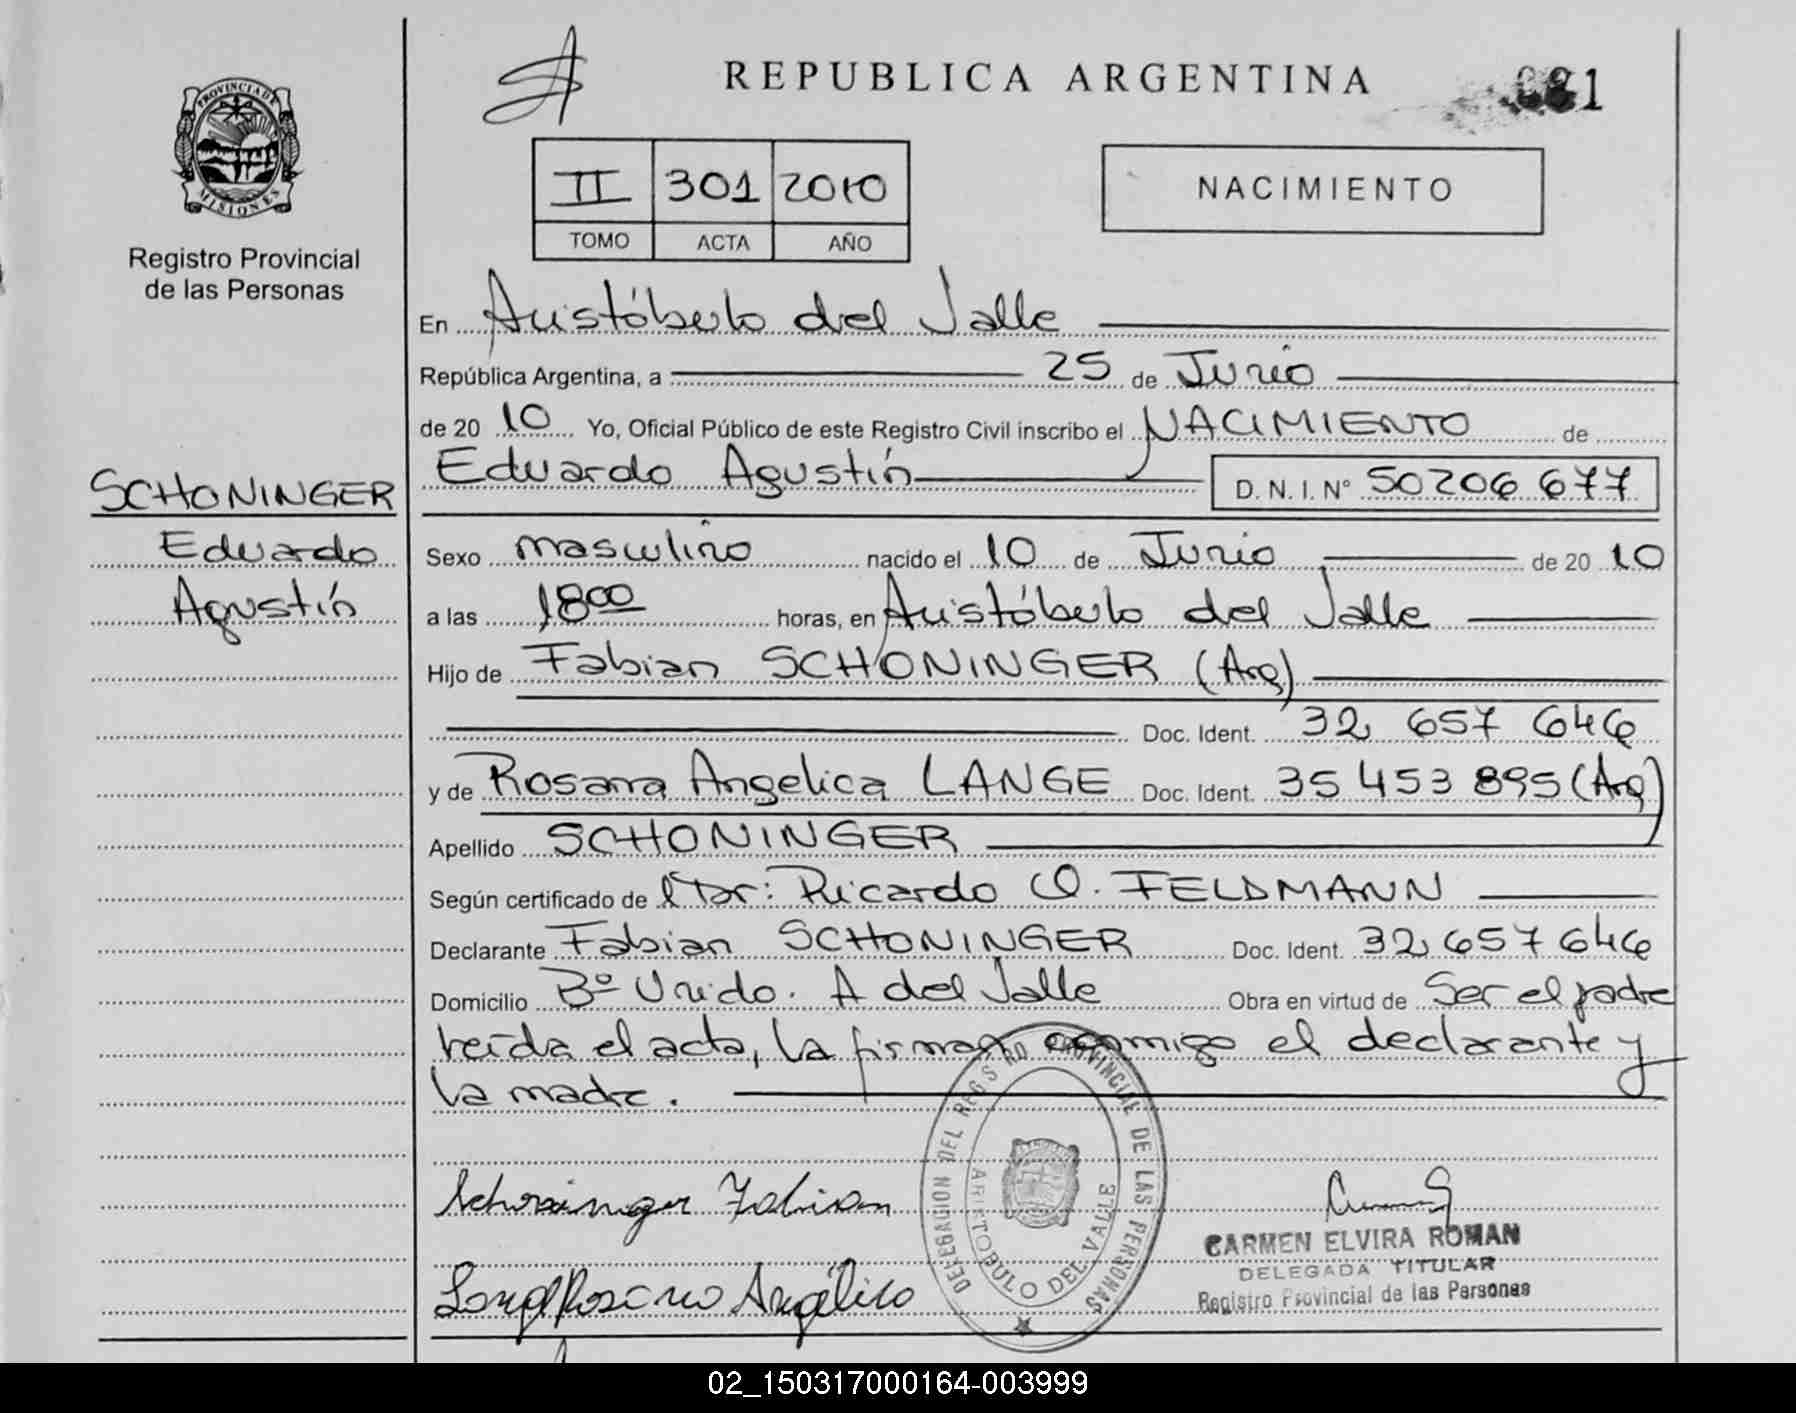 REPUBLICA ARGENTINA
PROVINCIA DE MISIONES
Registro Provincial
de las Personas
II 301 2010
TOMO ACTA AÑO
NACIMIENTO
En Aristóbulo del Valle
República Argentina, a 25 de Junio
de 2010 Yo, Oficial Público de este Registro Civil inscribo el NACIMIENTO de
SCHONINGER
Eduardo
Agustín
Eduardo Agustín D. N. I. N° 50206 677
Sexo masculino nacido el 10 de Junio de 2010
a las 18 00 horas, en Aristóbulo del Valle
Hijo de Fabian SCHONINGER (Arg)
Doc. Ident. 32 657 646
y de Rosana Angelica LANGE Doc. Ident. 35 453 895 (Arg)
Apellido SCHONINGER
Según certificado de Dr: Ricardo O. FELDMANN
Declarante Fabian SCHONINGER Doc. Ident. 32 657 646
Domicilio Bº Unido. A del Valle Obra en virtud de Ser el padre
Leída el acta, la firman conmigo el declarante y
la madre.
DELEGACION DEL REGISTRO PROVINCIAL DE LAS PERSONAS
ARISTOBULO DEL VALLE
Schoninger Fabian
CARMEN ELVIRA ROMAN
DELEGADA TITULAR
Registro Provincial de las Personas
Rosana Angélica
02_150317000164-003999